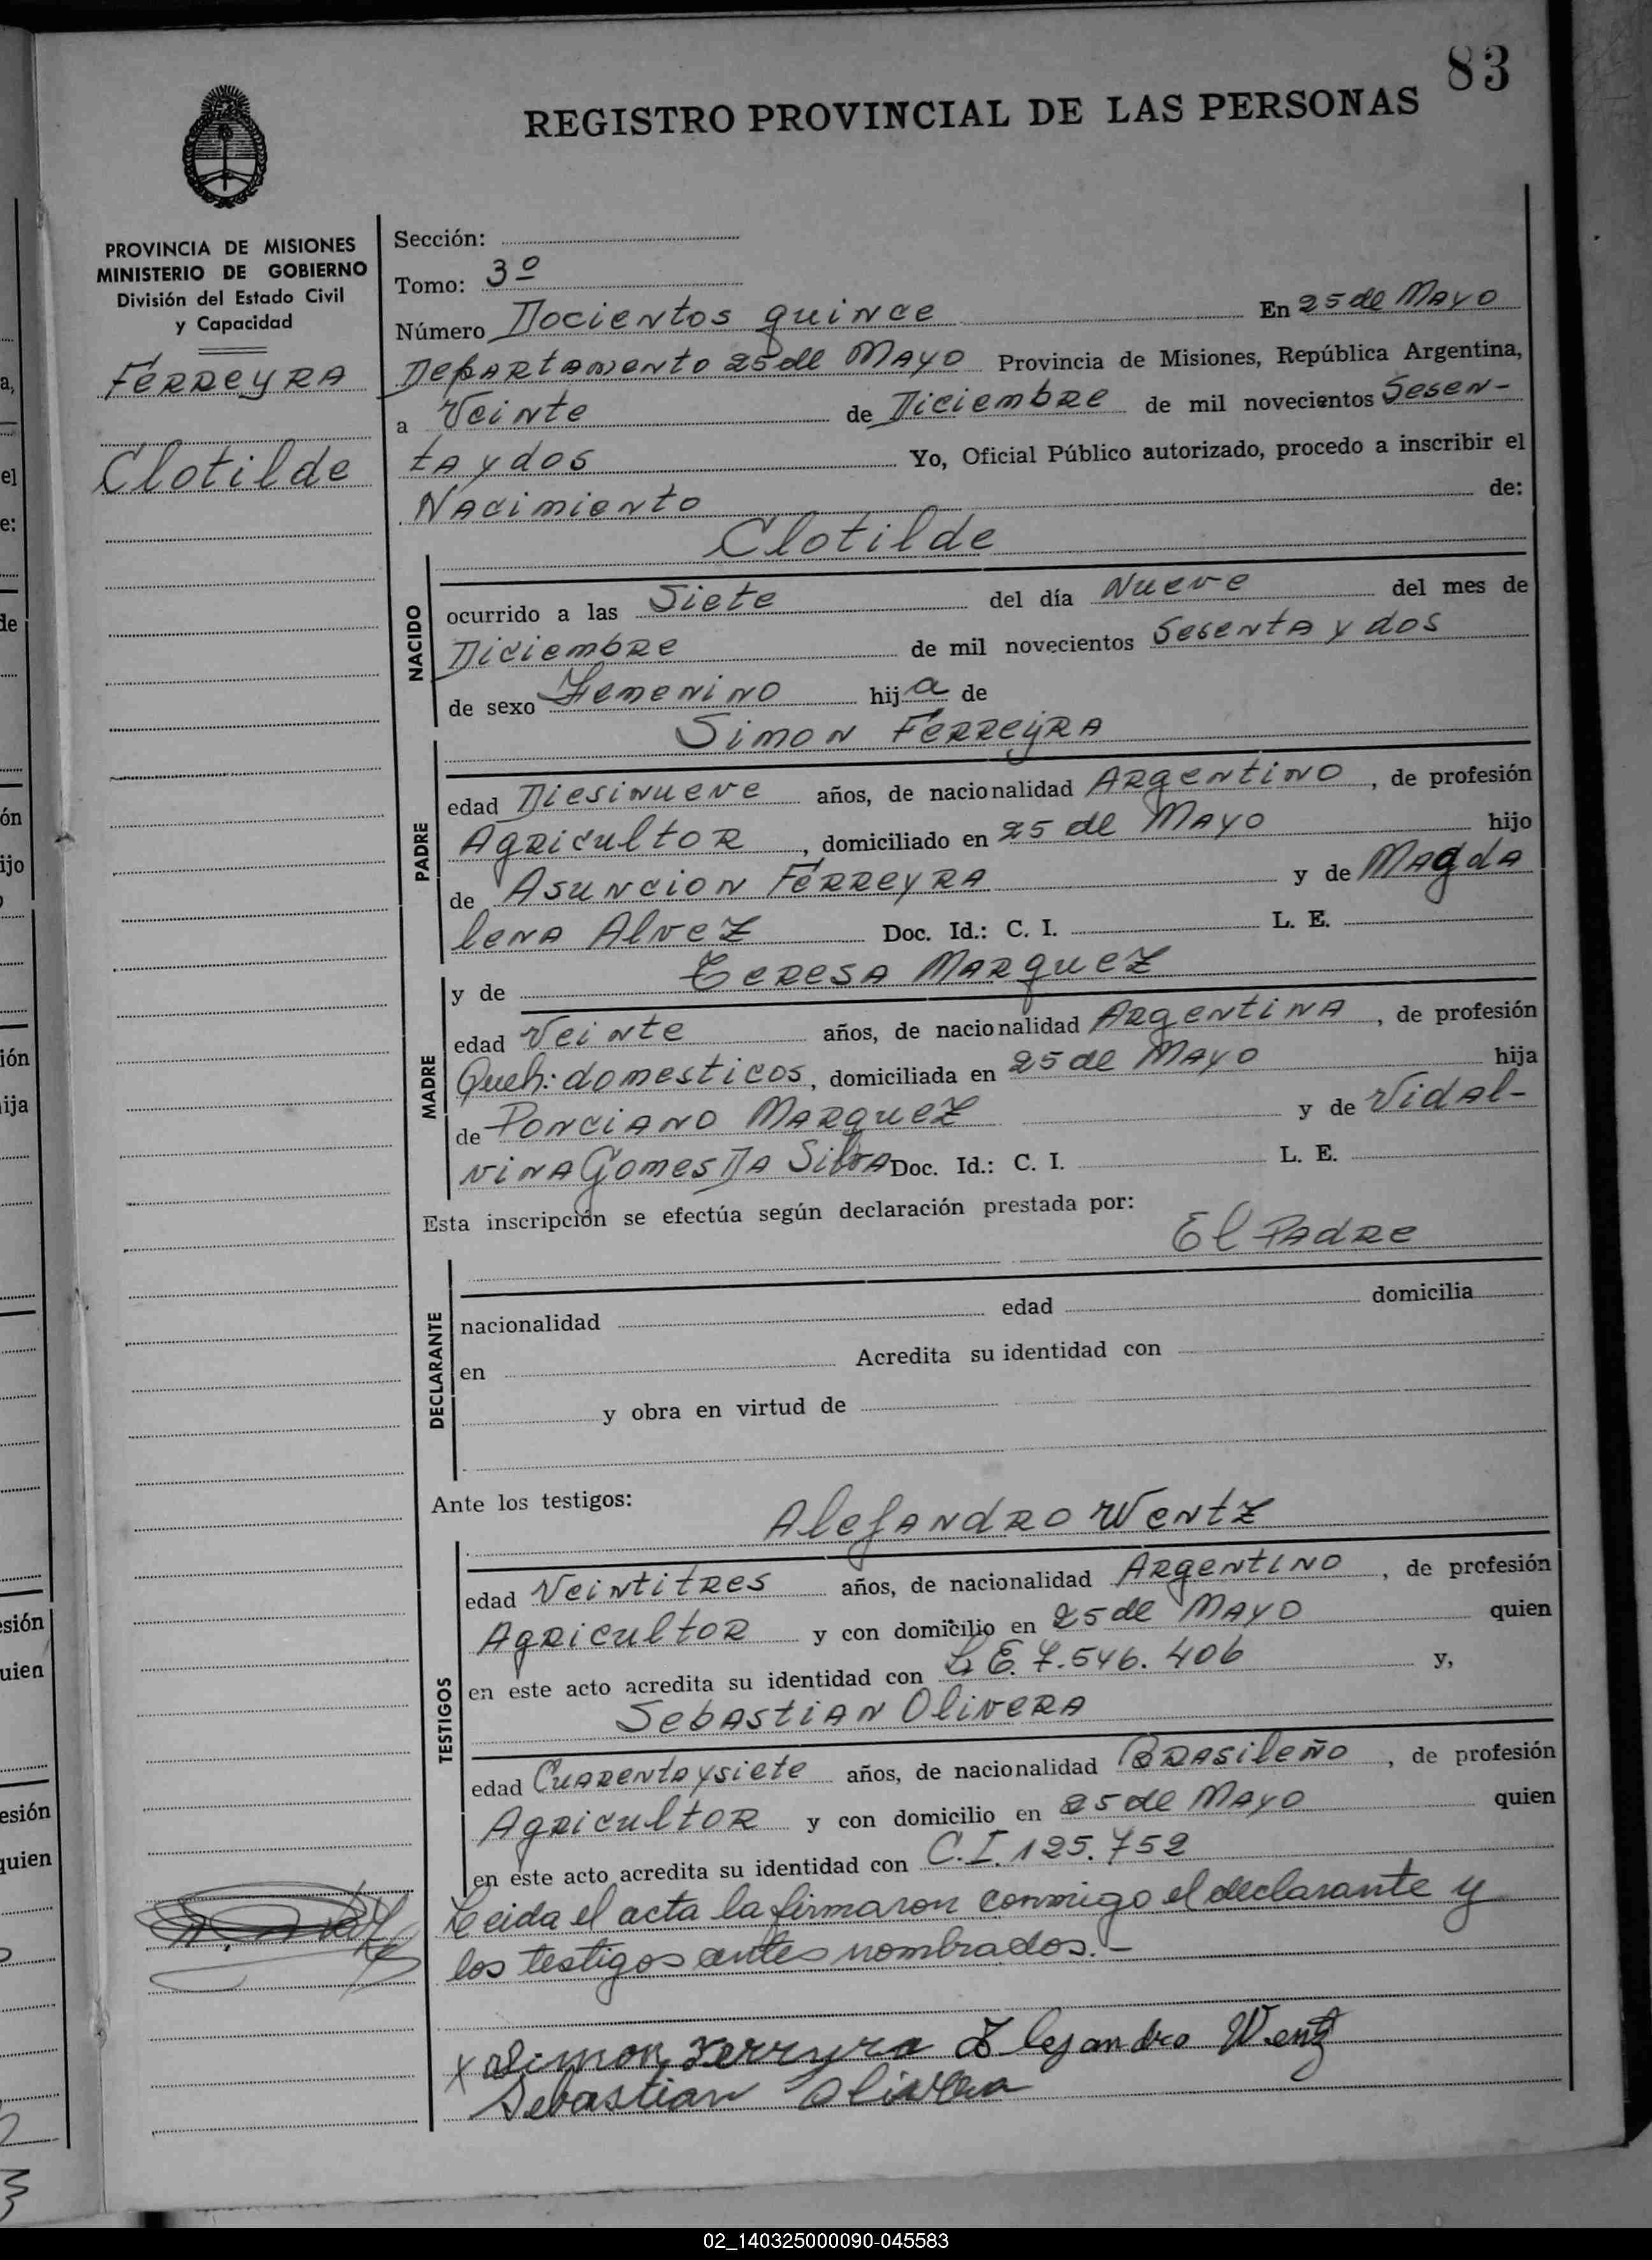 83
REGISTRO PROVINCIAL DE LAS PERSONAS
PROVINCIA DE MISIONES
MINISTERIO DE GOBIERNO
División del Estado Civil
y Capacidad
FERREYRA
Clotilde
Sección:
Tomo: 3º
Número Docientos quince En 25 de Mayo
Departamento 25 de Mayo Provincia de Misiones, República Argentina,
a Veinte de Diciembre de mil novecientos Sesen-
ta y dos Yo, Oficial Público autorizado, procedo a inscribir el
Nacimiento de:
Clotilde
NACIDO
ocurrido a las Siete del día Nueve del mes de
Diciembre de mil novecientos Sesenta y dos
de sexo Femenino hij a de
Simon Ferreyra
PADRE
edad Diesinueve años, de nacionalidad Argentino, de profesión
Agricultor, domiciliado en 25 de Mayo hijo
de Asuncion Ferreyra y de Magda
lena Alvez Doc. Id.: C. I. L. E.
y de Teresa Marquez
MADRE
edad Veinte años, de nacionalidad Argentina, de profesión
Queh: domesticos, domiciliada en 25 de Mayo hija
de Ponciano Marquez y de Vidal-
vina Gomes Da Silva Doc. Id.: C. I. L. E.
Esta inscripción se efectúa según declaración prestada por:
El Padre
DECLARANTE
nacionalidad edad domicilia
en Acredita su identidad con
y obra en virtud de
Ante los testigos:
Alejandro Wentz
TESTIGOS
edad Veintitres años, de nacionalidad Argentino, de profesión
Agricultor y con domicilio en 25 de Mayo quien
en este acto acredita su identidad con L. E. 7.546.406 y,
Sebastian Olivera
edad Cuarenta y siete años, de nacionalidad Brasileño, de profesión
Agricultor y con domicilio en 25 de Mayo quien
en este acto acredita su identidad con C. I. 125.752
Leida el acta la firmaron conmigo el declarante y
los testigos antes nombrados.-
x Simon Ferryra Alejandro Wentz
Sebastian Olivera
02_140325000090-045583